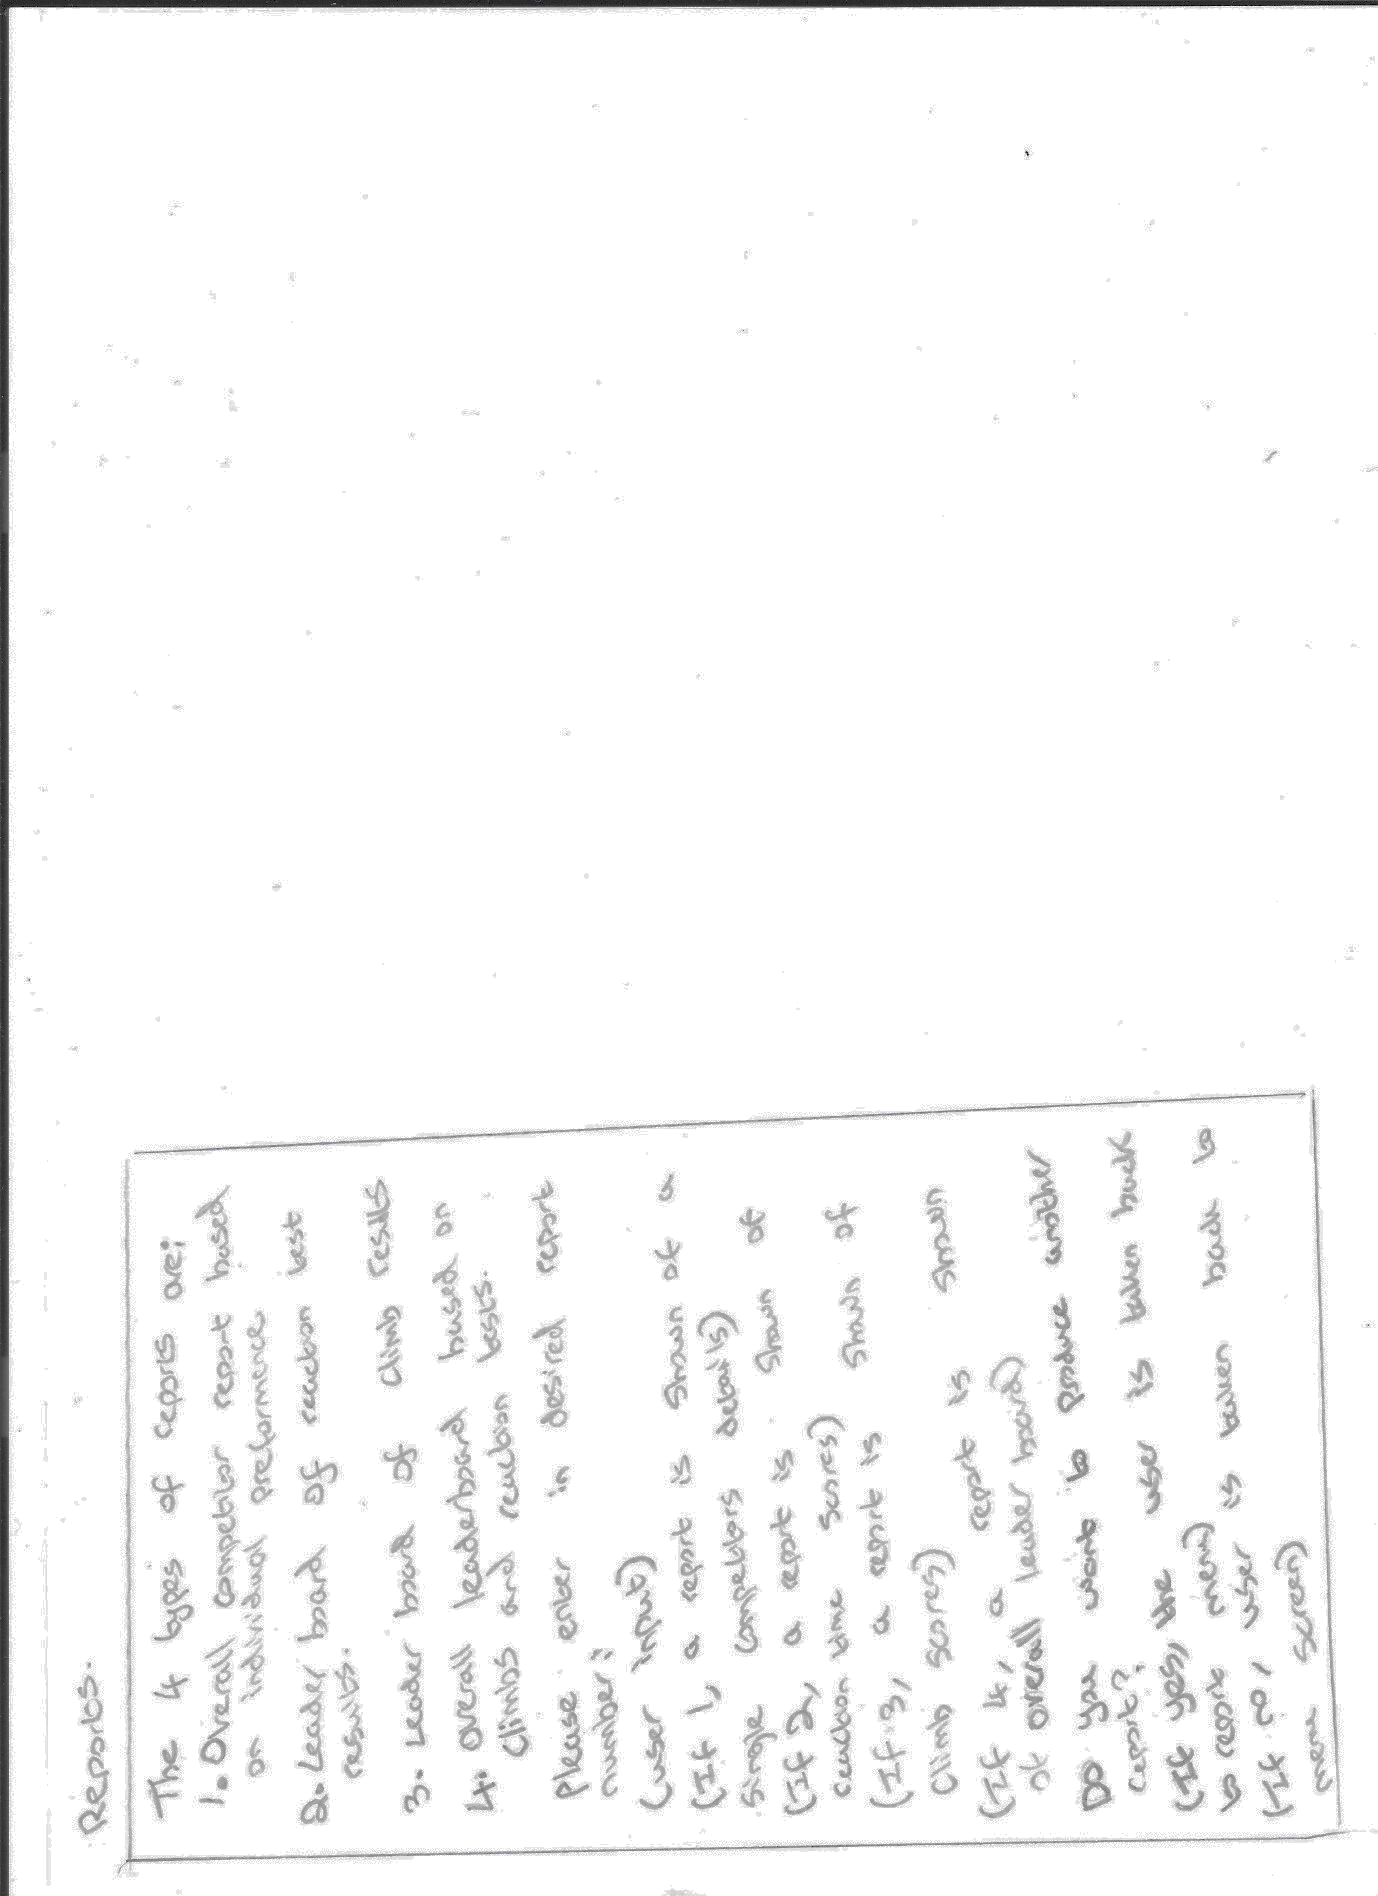 Reports.
The 4 types of reports are;
1. Overall competitor report based
on individual preformence
2. Leader board of reaction best
results.
3. Leader board of climb results
4. overall leaderboard based on
climbs and reaction bests.
please enter in desired report
number:
(user input)
(If 1, a report is shown of a
single competitors details)
(If 2, a report is shown of
reaction time scores)
(If 3, a report is shown of
climb scores)
(If 4, a report is shown
of overall leader board)
Do you want to produce another
report?
(If yes, the user is taken back
to report menu)
(If no, user is taken back to
menu screen)